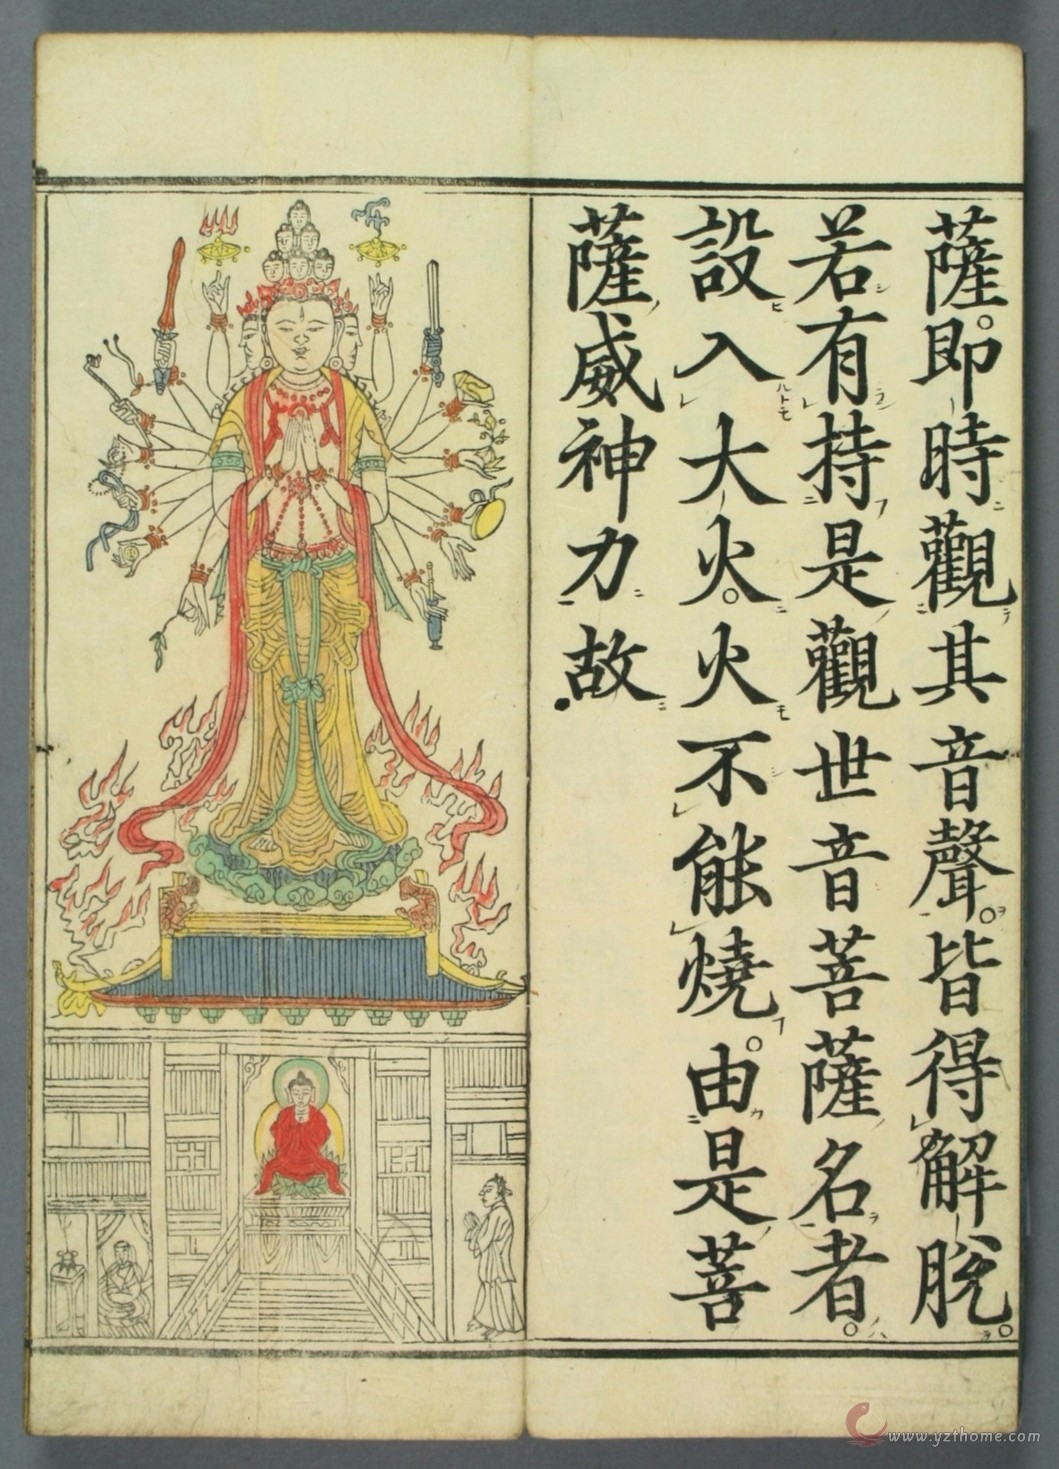 薩。即時觀其音聲。皆得解脫。
若有持是觀世音菩薩名者。
設入大火。火不能燒。由是菩
薩威神力故
www.yzthome.com